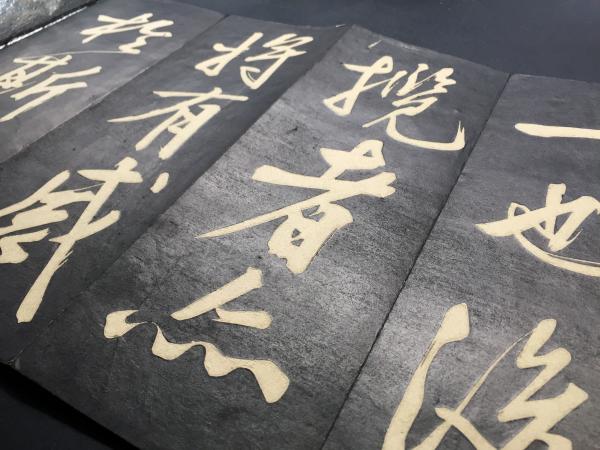 一也後
攬者亦
將有感
於斯